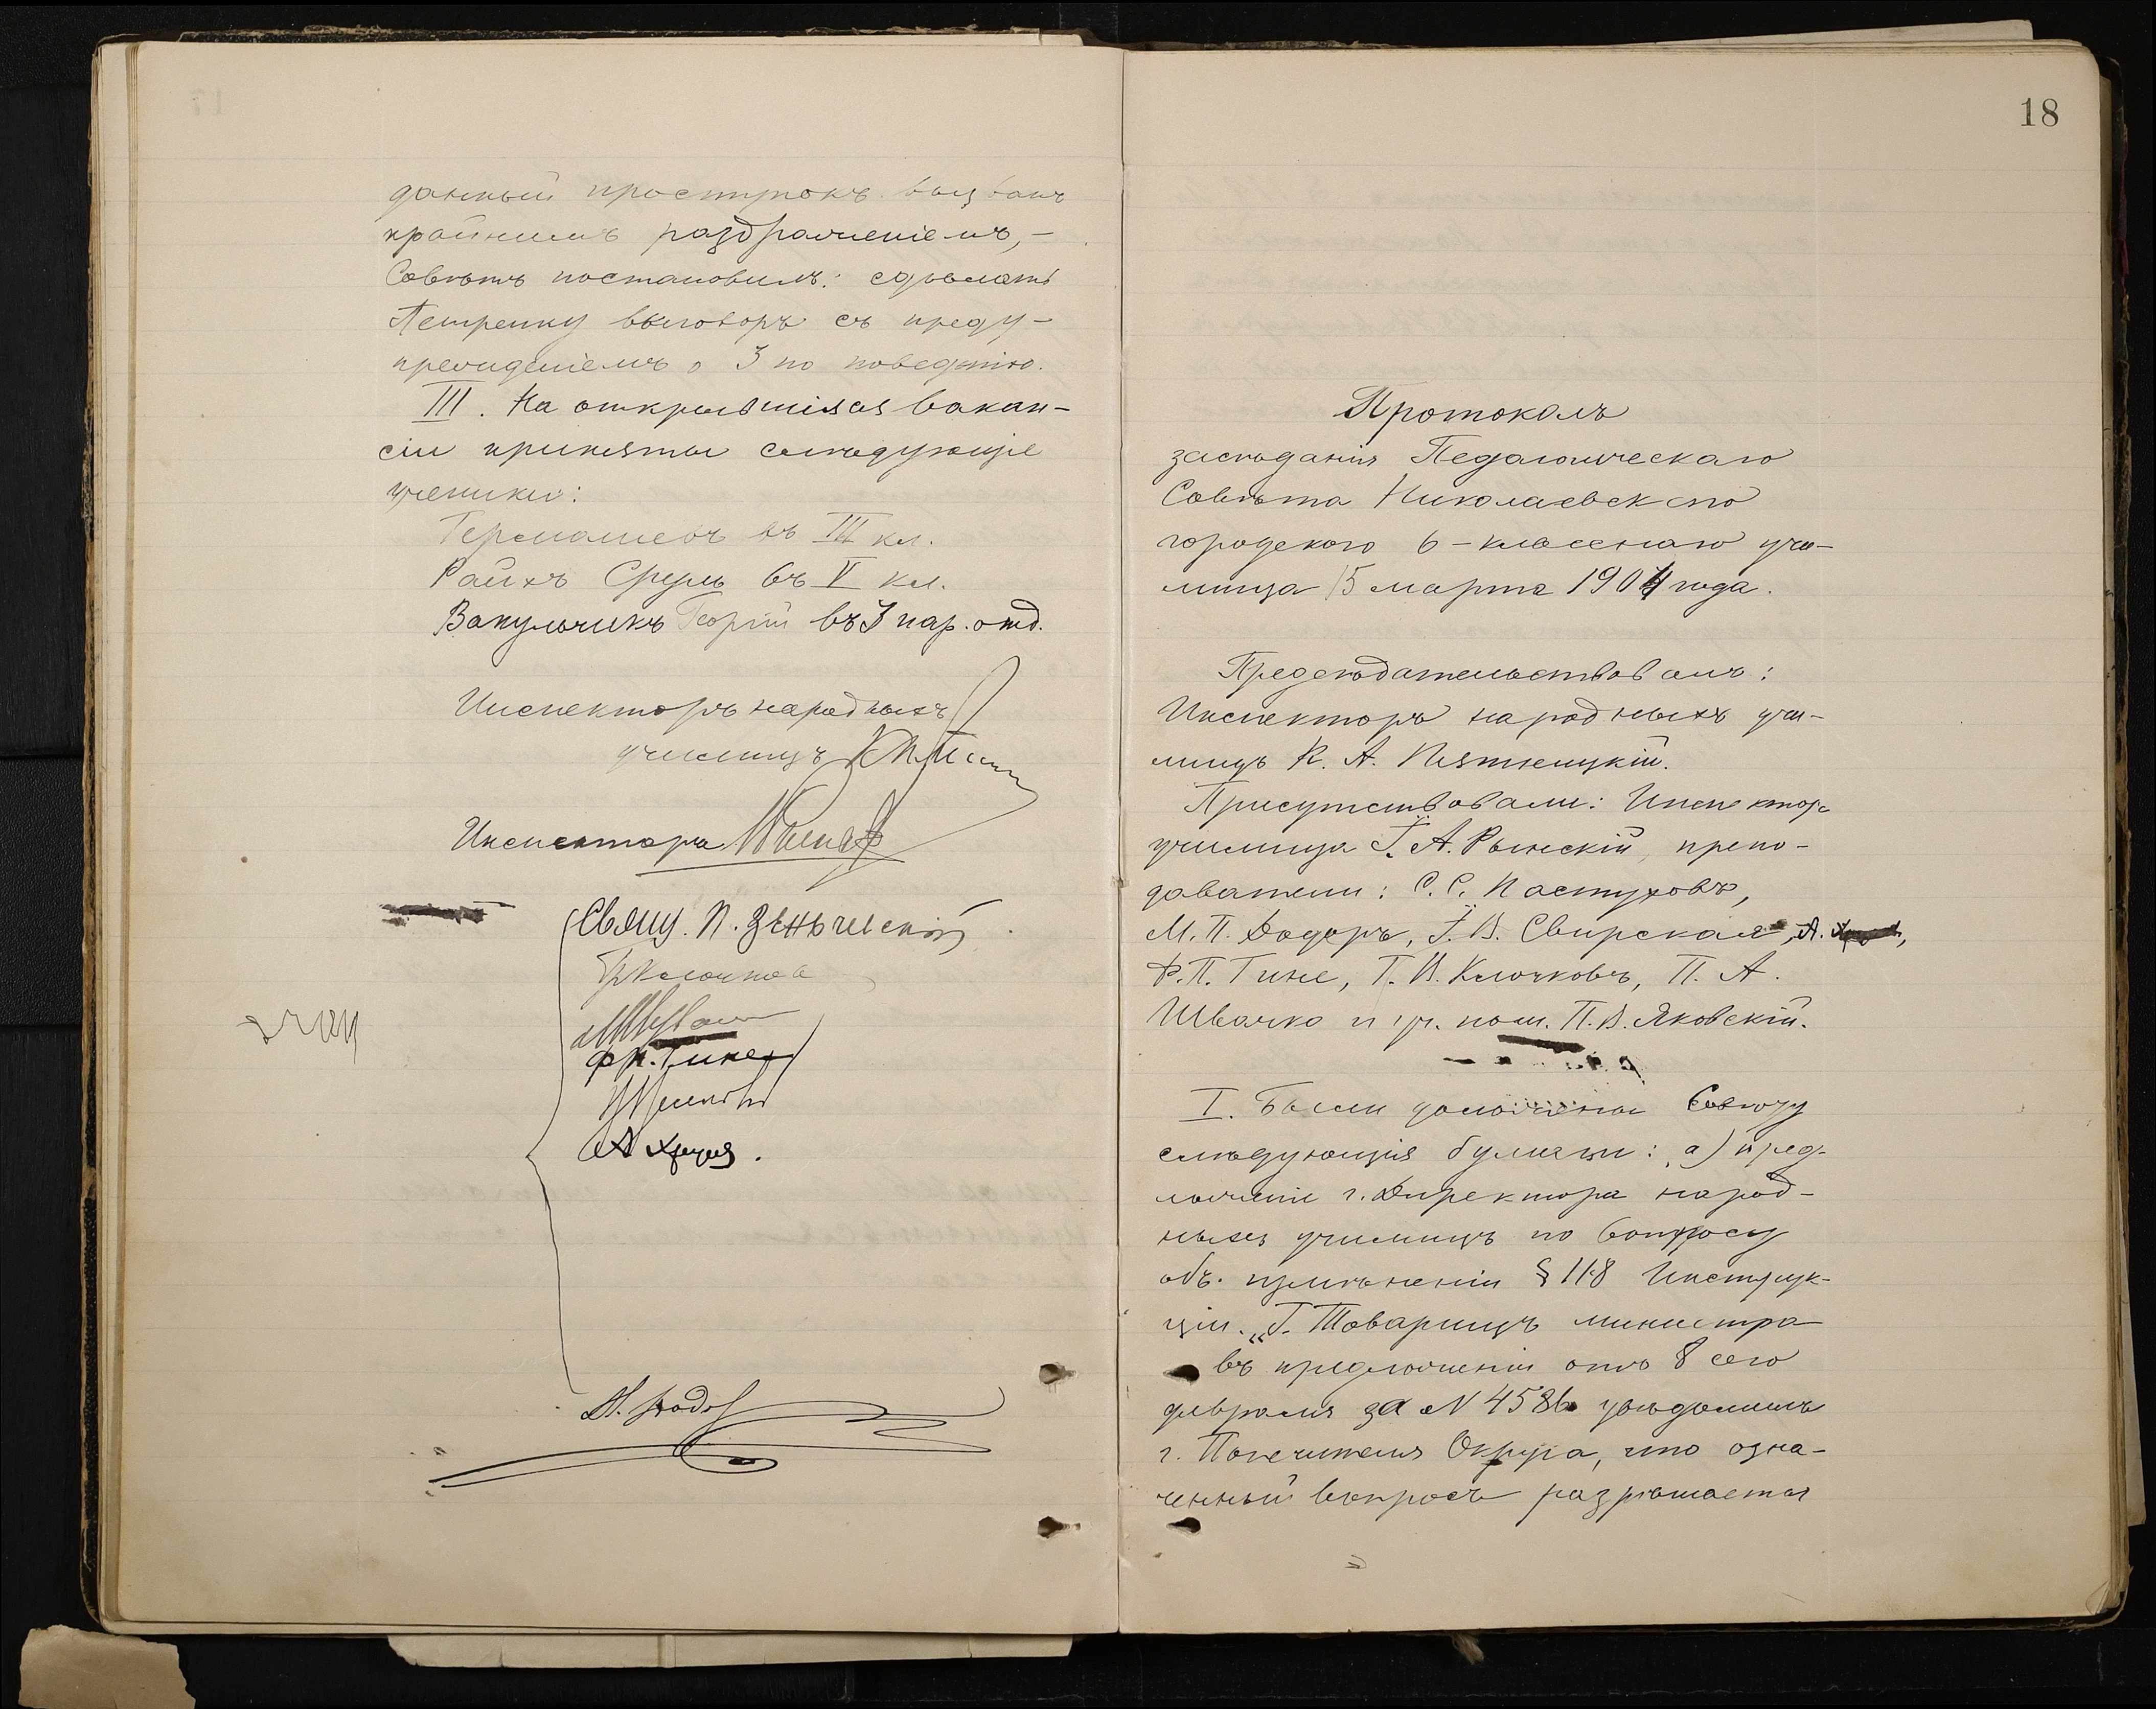 данный проступокъ вызванъ
крайнимъ раздраженіемъ, –
Совѣтъ постановилъ: сдѣлать
Петренку выговоръ съ преду-
прежденіемъ о 3 по поведенію.
III. На открывшіяся вакан-
сіи приняты слѣдующіе
ученики:
въ III кл.
Райхъ Сруль въ V кл.
Вакульчикъ Георгій въ I пар. отд.
Инспекторъ народныхъ
училищъ
Инспекторъ
Свящ. П.
Ф. П. Гине
18
Протоколъ
засѣданія Педагогическаго
Совѣта Николаевскаго
городского 6-класснаго учи-
лища 15 марта 1904 года.
Предсѣдательствовалъ:
Инспекторъ народныхъ учи-
лищъ К. А. Пятницкій.
Присутствовали: Инспекторъ
училища Г. А. Рынскій, препо-
даватели: С. С. Пастуховъ,
М. П. Додоръ, Г. В. Свирская, А.
Ф. П. Гине, Г. В. Клочковъ, П. А.
Швачко и уч. пом. П. В. Яковскій.
I. Были доложены Совѣту
слѣдующія бумаги: а) пред-
ложеніе г. Директора народ-
ныхъ училищъ по вопросу
объ измѣненіи § 118 Инструк-
ціи. „Г. Товарищъ министра
въ предложеніи отъ 8 сего
февраля за № 4586 увѣдомилъ
г. Попечителя Округа, что озна-
ченный вопросъ разрѣшается